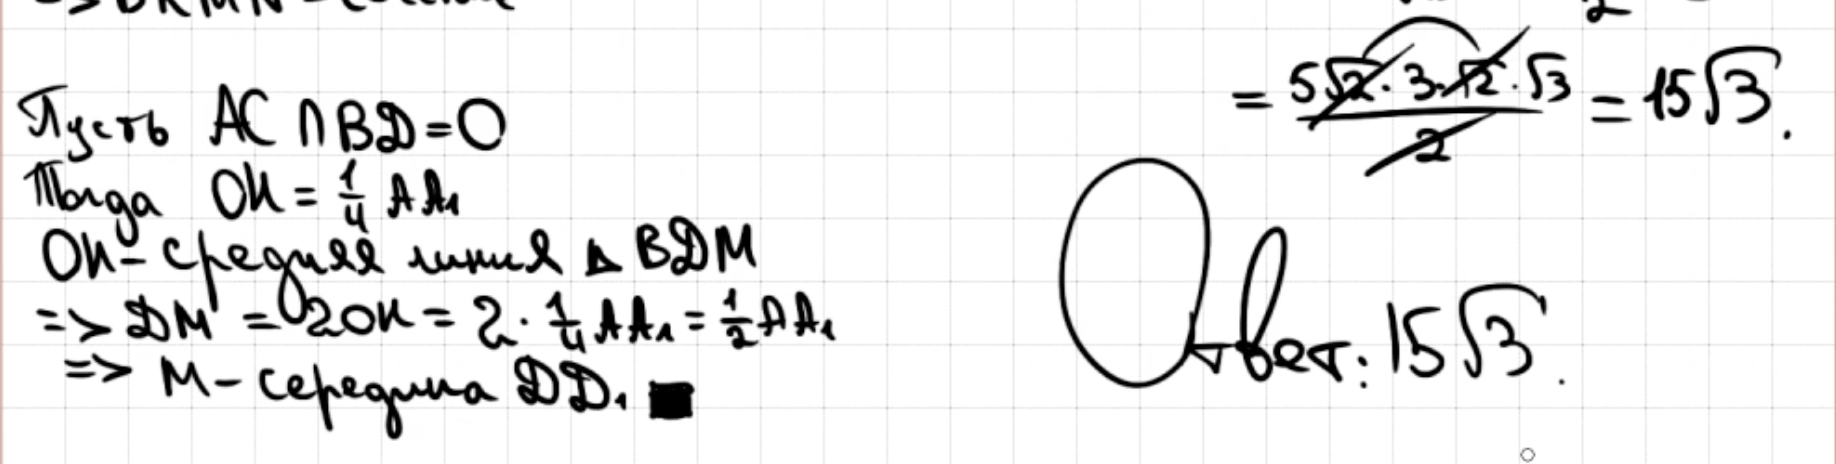 => BKMN -
Пусть AC ∩ BD = O
Тогда OK = 1/4 AA₁
OK - средняя линия △ BDM
=> DM = 2OK = 2 · 1/4 AA₁ = 1/2 AA₁
=> M - середина DD₁ ■
2
= (5√2 · 3 · √2 · √3)/2 = 15√3.
Ответ: 15√3.